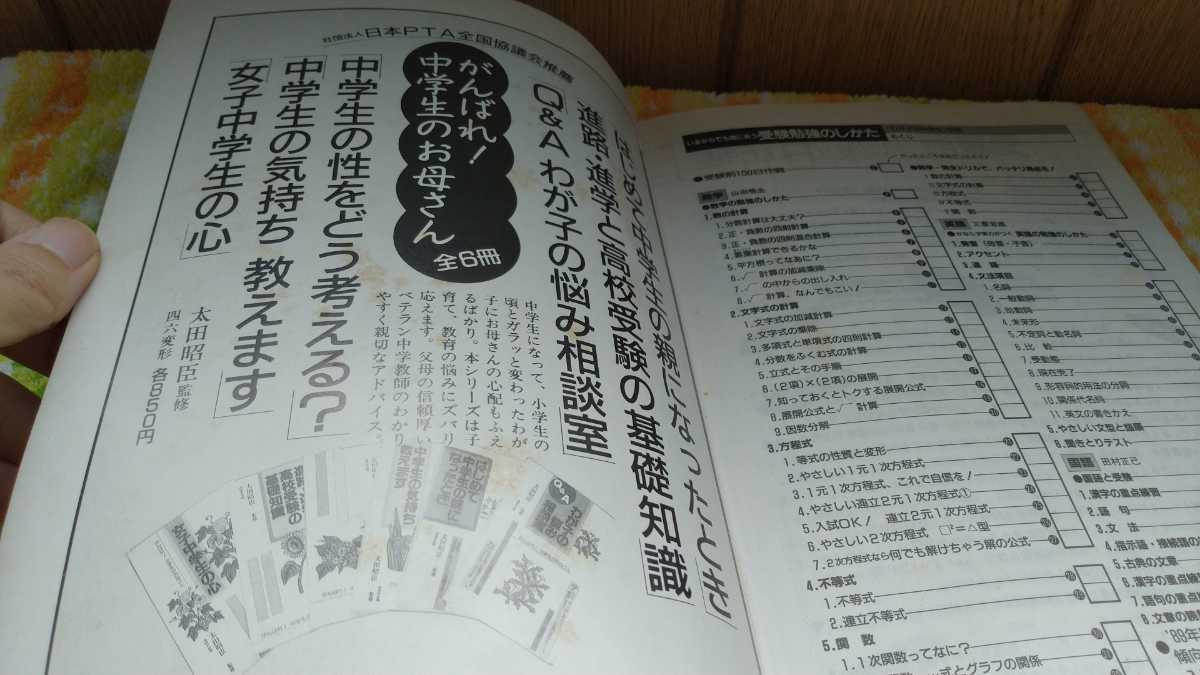 社団法人日本PTA全国協議会推薦
がんばれ！
中学生のお母さん
全6冊
「はじめて中学生の親になったとき」
「進路・進学と高校受験の基礎知識」
「Q&Aわが子の悩み相談室」
「中学生の性をどう考える？」
「中学生の気持ち 教えます」
「女子中学生の心」
中学生になって、小学生の
頃とガラッと変わったわが
子にお母さんの心配もふえ
るばかり。本シリーズは子
育て、教育の悩みにズバリ
応えます。父母の信頼厚い
ベテラン中学教師のわかり
やすく親切なアドバイス。
太田昭臣監修
四六変形 各850円
女子中学生の心
進路・進学と
高校受験の
基礎知識
中学生の気持ち
教えます
はじめて
中学生の親に
なったとき
いまからでも間にあう 受験勉強のしかた
●受験前100日作戦
数学
●数学の勉強のしかた
1.数の計算
1.分数計算は大丈夫？
2.正・負数の四則計算
3.正・負数の四則混合計算
4.累乗計算できるかな
5.平方根ってなあに？
6.√ 計算の加減乗除
7.√ の中からの出し入れ
8.√ 計算、なんでもこい！
2.文字式の計算
1.文字式の加減計算
2.文字式の乗除
3.多項式と単項式の四則計算
4.分数をふくむ式の計算
5.立式とその手順
6.(2項)×(2項)の展開
7.知っておくとトクする展開公式
8.展開公式と√ 計算
9.因数分解
3.方程式
1.等式の性質と変形
2.やさしい1元1次方程式
3.1元1次方程式、これで自信を！
4.やさしい連立2元1次方程式①
5.入試OK！ 連立2元1次方程式
6.やさしい2次方程式 □²=△型
7.2次方程式なら何でも解けちゃう解の公式
4.不等式
1.不等式
2.連立不等式
5.関数
1.1次関数ってなに？
式とグラフの関係
●数学・完全ドリルで、バッチリ満点を！
1.数式計算
2.文字式の計算
3.方程式
4.不等式
5.関数
英語
英語の勉強のしかた
1.発音（母音・子音）
2.アクセント
4.文法項目
1.名詞
2.一般動詞
3.助動詞
4.未来形
5.不定詞と動名詞
6.比較
7.受動態
8.現在完了
9.形容詞的用法の分詞
10.関係代名詞
11.英文の書きかえ
5.やさしい文型と語順
6.聞きとりテスト
国語 田村正巳
●国語と受験
1.漢字の重点練習
2.語句
3.文法
4.指示語・接続語の
5.古典の文章
6.漢字の重点練
7.語句の重点練
8.文章の読
●'89年
傾向